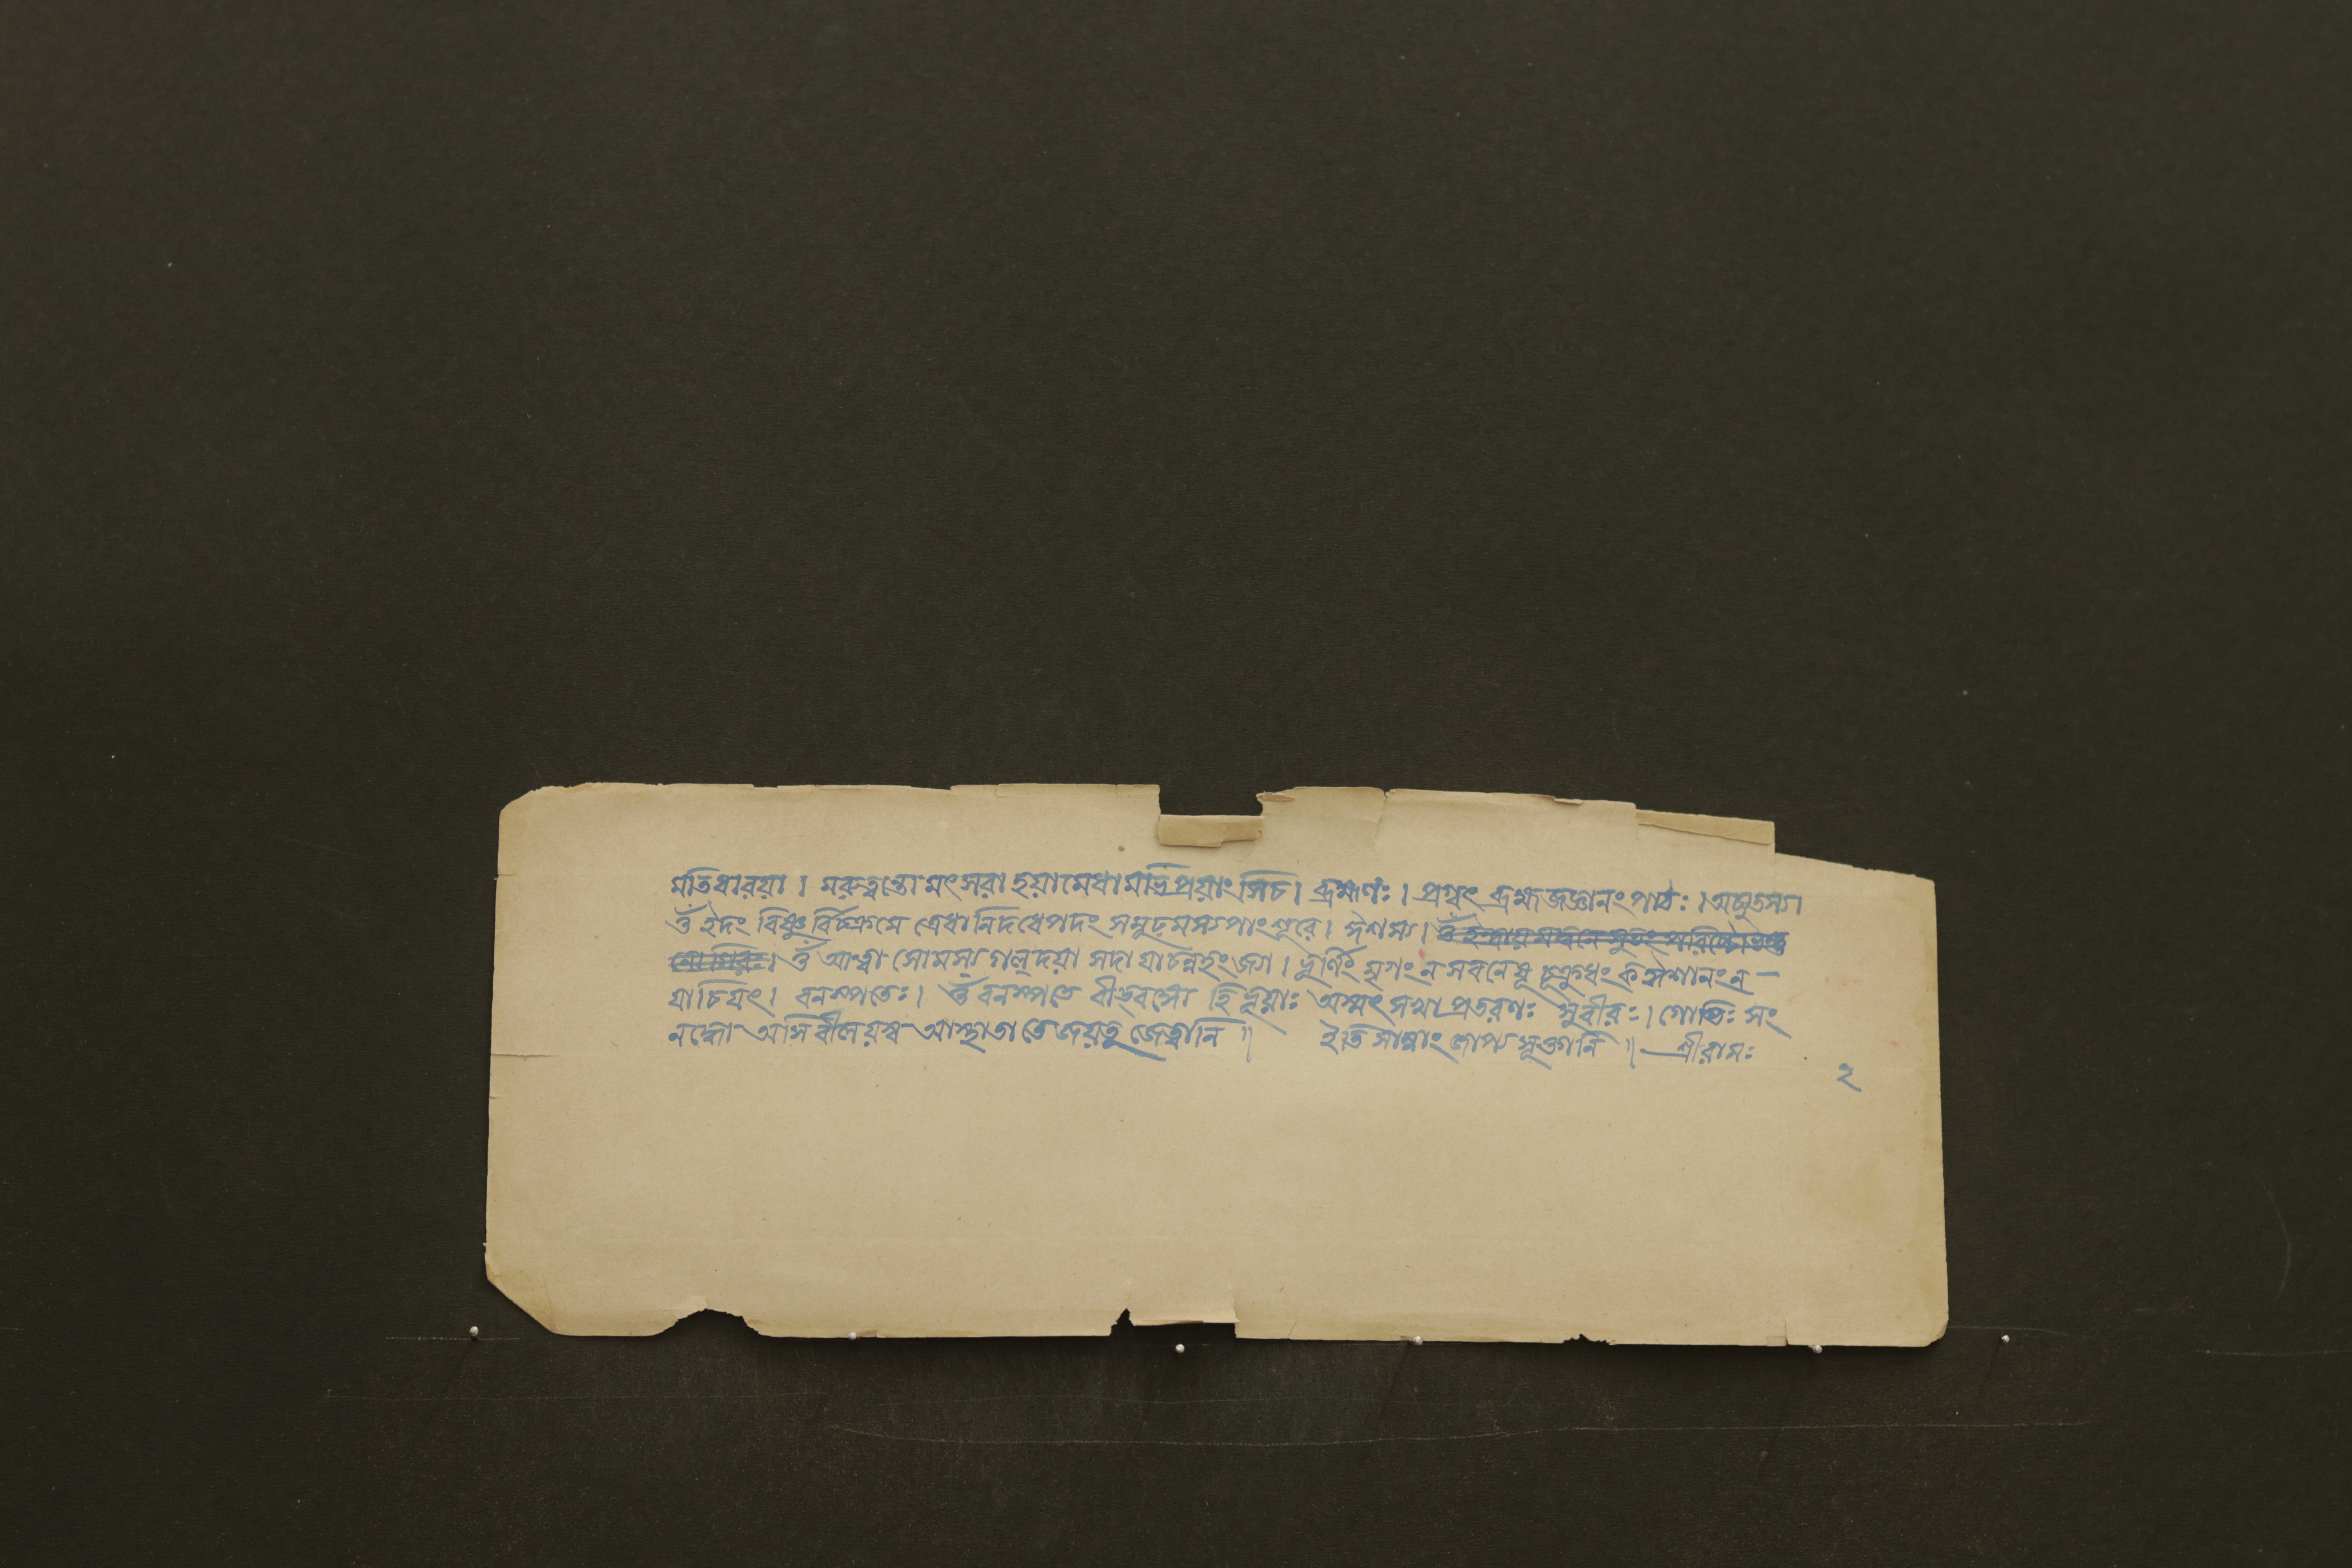 মতিধারয়া । মরুত্বন্তো মৎসরা হয়া মেধামভিপ্রয়াংসিচ । ব্রহ্মণঃ । প্রগ্বৎ ব্রহ্মজজ্ঞানং পাঠঃ । অচ্যুতস্য ।
ওঁ ইদং বিষ্ণুর্বিচক্রমে ত্রেধা নিদধেপদং সমূঢ়মস্য পাংশুরে । ঈশস্য । ওঁ ইন্দ্রায় মদ্বনে সুতং পরিষ্টোভন্তু
নো গিরঃ । ওঁ আত্বা সোমস্য গল্দয়া সদা যাচন্নহং জ্যা । ভূর্ণিং মৃগং ন সবনেষু চুক্রুধং ক ঈশানং ন —
যাচিষৎ । বনস্পতেঃ । ওঁ বনস্পতে বীড্বঙ্গো হি ভূয়াঃ অস্মৎ সখা প্রতরণঃ সুবীরঃ । গোভিঃ সং
নদ্ধো অসি বীলয়স্ব আস্থাতা তে জয়তু জেত্বানি ॥ ইতি সাম্নাং জাপ্য সূক্তানি ॥ শ্রীরামঃ
২